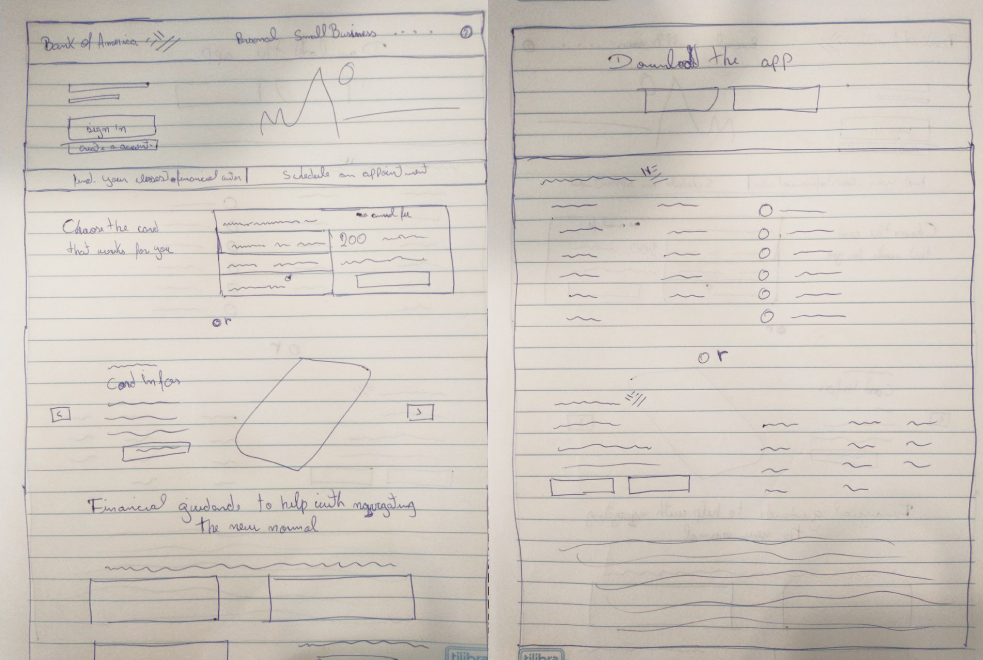 Bank of America
Personal Small Business ....
?
sign in
Find your closest financial center
Schedule an appointment
Choose the card
that works for you
annual fee
200
or
Card infos
<
>
Financial guidance to help with navigating
the new normal
tilibra
Download the app
or
tilibra